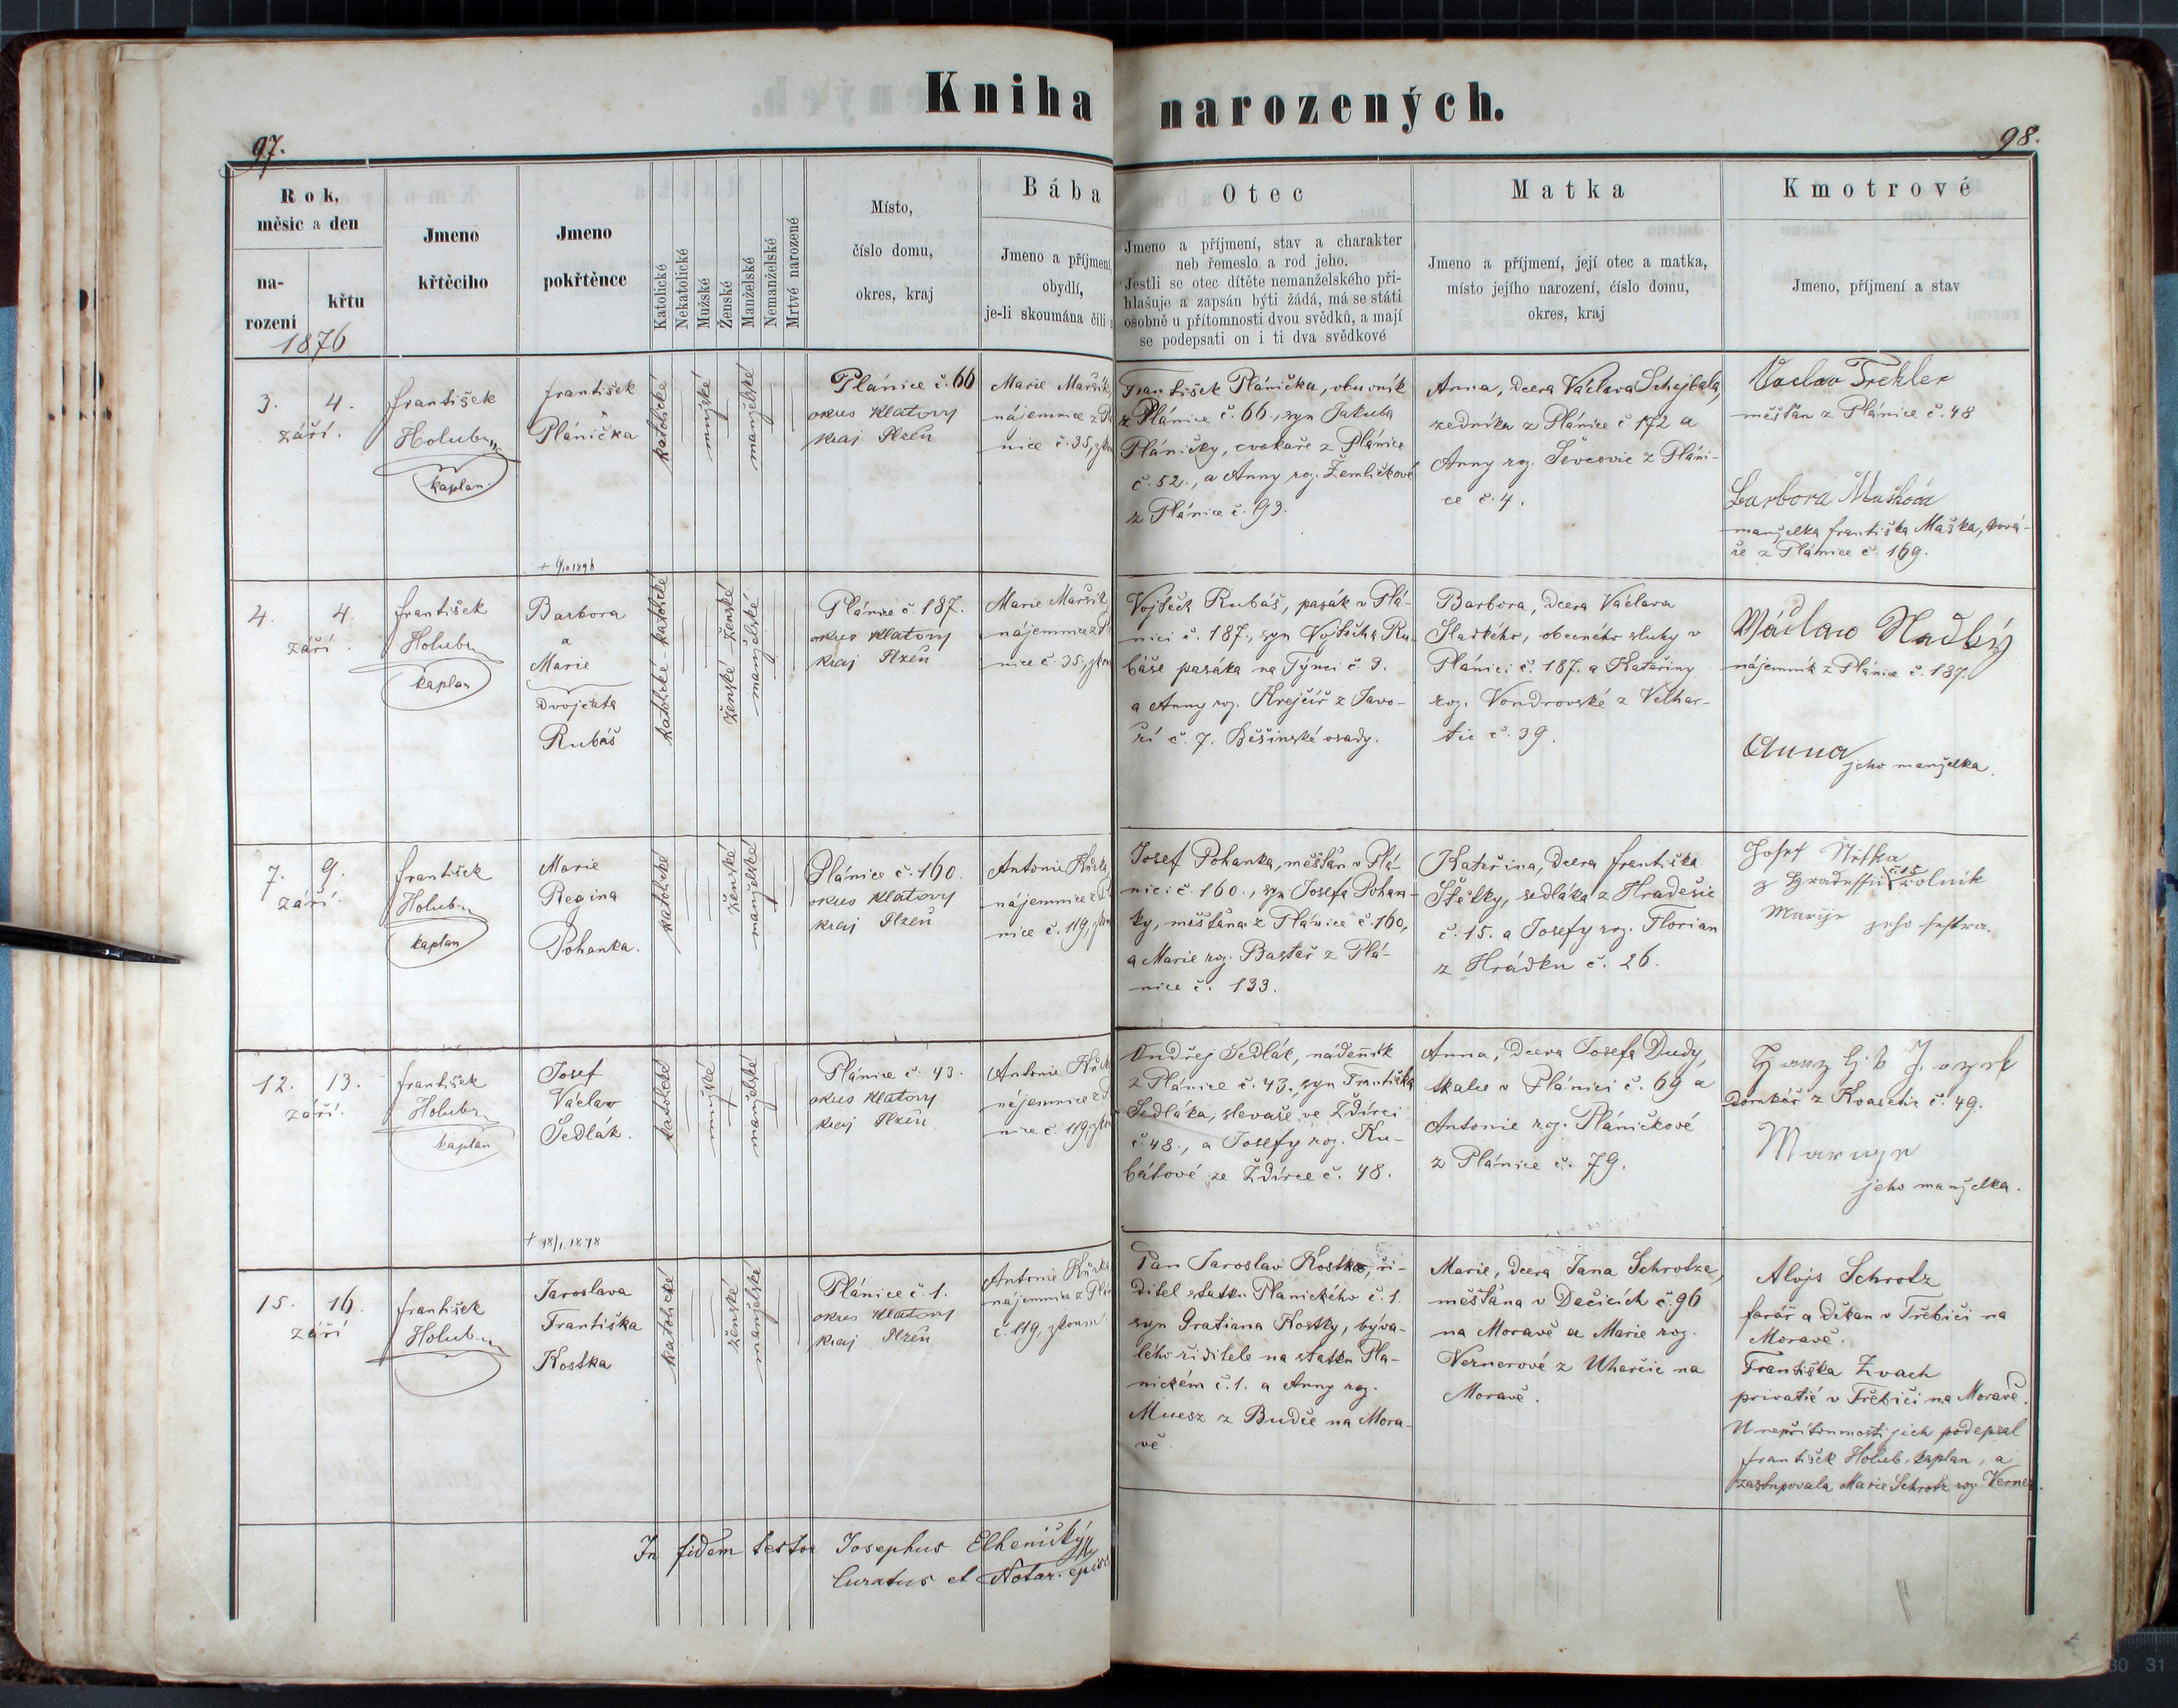 Kniha narozených.
97.
98.
Rok,
měsíc a den
na-
rozeni
křtu
1876
Jmeno
křtěcího
Jmeno
pokřtěnce
Katolické
Nekatolické
Mužské
Ženské
Manželské
Nemanželské
Mrtvé narozené
Místo,
číslo domu,
okres, kraj
Bába
Jmeno a příjmení,
obydlí,
je-li skoumána čili
Otec
Jmeno a příjmení, stav a charakter
neb řemeslo a rod jeho.
Jestli se otec dítěte nemanželského při-
hlašuje a zapsán býti žádá, má se státi
osobně u přítomnosti dvou svědků, a mají
se podepsati on i ti dva svědkové
Matka
Jmeno a příjmení, její otec a matka,
místo jejího narození, číslo domu,
okres, kraj
Kmotrové
Jmeno, příjmení a stav
3. 4.
září.
František
Holub
kaplan.
František
Plánička
katolické
mužské
manželské
Plánice č. 66
okres Klatovy
kraj Plzeň
Marie
nájemnice z
nice č. 35,
František Plánička, obuvník
z Plánice č. 66., syn Jakuba
Pláničky, cvokaře z Plánice
č. 52., a Anny roz. Žemličkové
z Plánice č. 93.
Anna, dcera Václava Schejbala,
zedníka z Plánice č. 172 a
Anny roz. Ševcovic z Pláni-
ce č. 4.
Vaclav Trekler
měšťan z Plánice č. 48
Barbora Mašková
manželka Františka Maška, ková-
ře z Plánice č. 169.
4. 4.
září.
František
Holub
kaplan
Barbora
a
Marie
dvojčata
Rubáš
katolické katolické
ženské ženské
manželské
Plánice č. 187.
okres Klatovy
kraj Plzeň
Marie
nájemnice z
nice č. 35,
Vojtěch Rubáš, pasák v Plá-
nici č. 187., syn Vojtěcha Ru-
báše pasáka na Týnci č. 3.
a Anny roz. Krejčíř z Javo-
ří č. 7. Běšinské osady.
Barbora, dcera Václava
Sladkého, obecního sluhy v
Plánici č. 187. a Kateřiny
roz. Vondrovské z Velhar-
tic č. 39.
Václav Sladký
nájemník z Plánice č. 187.
Anna jeho manželka.
7. 9.
září.
František
Holub
kaplan
Marie
Regina
Pohanka.
katolické
ženské
manželské
Plánice č. 160.
okres Klatovy
kraj Plzeň
Antonie
nájemnice z
nice č. 119,
Josef Pohanka, měšťan v Plá-
nici č. 160., syn Josefa Pohan-
ky, měšťana z Plánice č. 160,
a Marie roz. Bastař z Plá-
nice č. 133.
Kateřina, dcera Františka
Štětky, sedláka z Hradešic
č. 15. a Josefy roz. Florian
z Hrádku č. 26.
Josef
č. 15 rolník
Marije jeho sestra.
12. 13.
září.
František
Holub
kaplan
Josef
Václav
Sedlák.
+ 18/1 1878
katolické
mužské
manželské
Plánice č. 43.
okres Klatovy
kraj Plzeň
Antonie
nájemnice z
nice č. 119,
Ondřej Sedlák, nádenník
z Plánice č. 43., syn Františka
Sedláka, slevače ve Ždírci
č. 48., a Josefy roz. Ku-
bátové ze Ždírce č. 48.
Anna, dcera Josefa Dudy,
tkalce v Plánici č. 69 a
Antonie roz. Pláničkové
z Plánice č. 79.
domkář z Kvasetic č. 49.
Marye
jeho manželka.
15. 16.
září
František
Holub
Jaroslava
Františka
Kostka
katolické
ženské
manželské
Plánice č. 1.
okres Klatovy
kraj Plzeň
Antonie
nájemnice z
č. 119, zkoum
Pan Jaroslav Kostka, ři-
ditel statku Planického č. 1.
syn Gratiana Kostky, býva-
lého ředitele na statku Pla-
nickém č. 1. a Anny roz.
Muesz z Budče na Mora-
vě.
Marie, dcera Jana Schrotze,
měšťana v Dačicích č. 96
na Moravě a Marie roz.
Vernerové z Uherčic na
Moravě.
Alojs Schrotz
farář a děkan v Třebíči na
Moravě.
Františka Zvach
privatié v Třebíči na Moravě.
U nepřítomnosti jich podepsal
František Holub, kaplan, a
zastupovala Marie Schrotz roz. Verner.
In fidem testor Josephus Elhenický
Curatus et Notar.